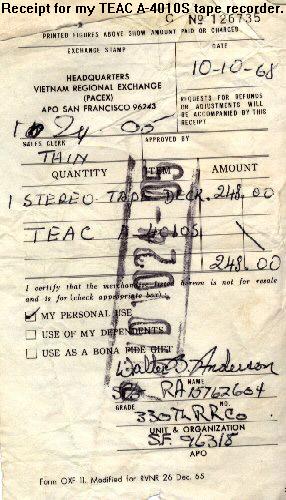 Receipt for my TEAC A-4010S tape recorder.
C Nº 126735
PRINTED FIGURES ABOVE SHOW AMOUNT PAID OR CHARGED
EXCHANGE STAMP
DATE
10-10-68
HEADQUARTERS
VIETNAM REGIONAL EXCHANGE
(PACEX)
APO SAN FRANCISCO 96243
REQUESTS FOR REFUNDS
OR ADJUSTMENTS WILL
BE ACCOMPANIED BY THIS
RECEIPT
SALES CLERK
APPROVED BY
THIN
QUANTITY ITEM AMOUNT
1 STEREO TAPE DECK. 248.00
TEAC A 4010S
248.00
I certify that the merchandise listed hereon is not for resale
and is for (check appropriate box).
MY PERSONAL USE
USE OF MY DEPENDENTS
USE AS A BONA FIDE GIFT
Walter B. Anderson
NAME
RA15762604
GRADE NO.
330th RRCo
UNIT & ORGANIZATION
SF 96318
APO
Form OXF 11. Modified for RVNR 26 Dec. 65